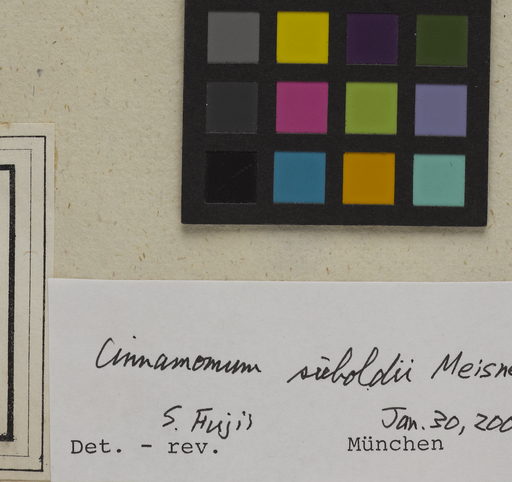 Cinnamomum sieboldii Meisne
S. Fujii Jan. 30, 200
Det. - rev. München